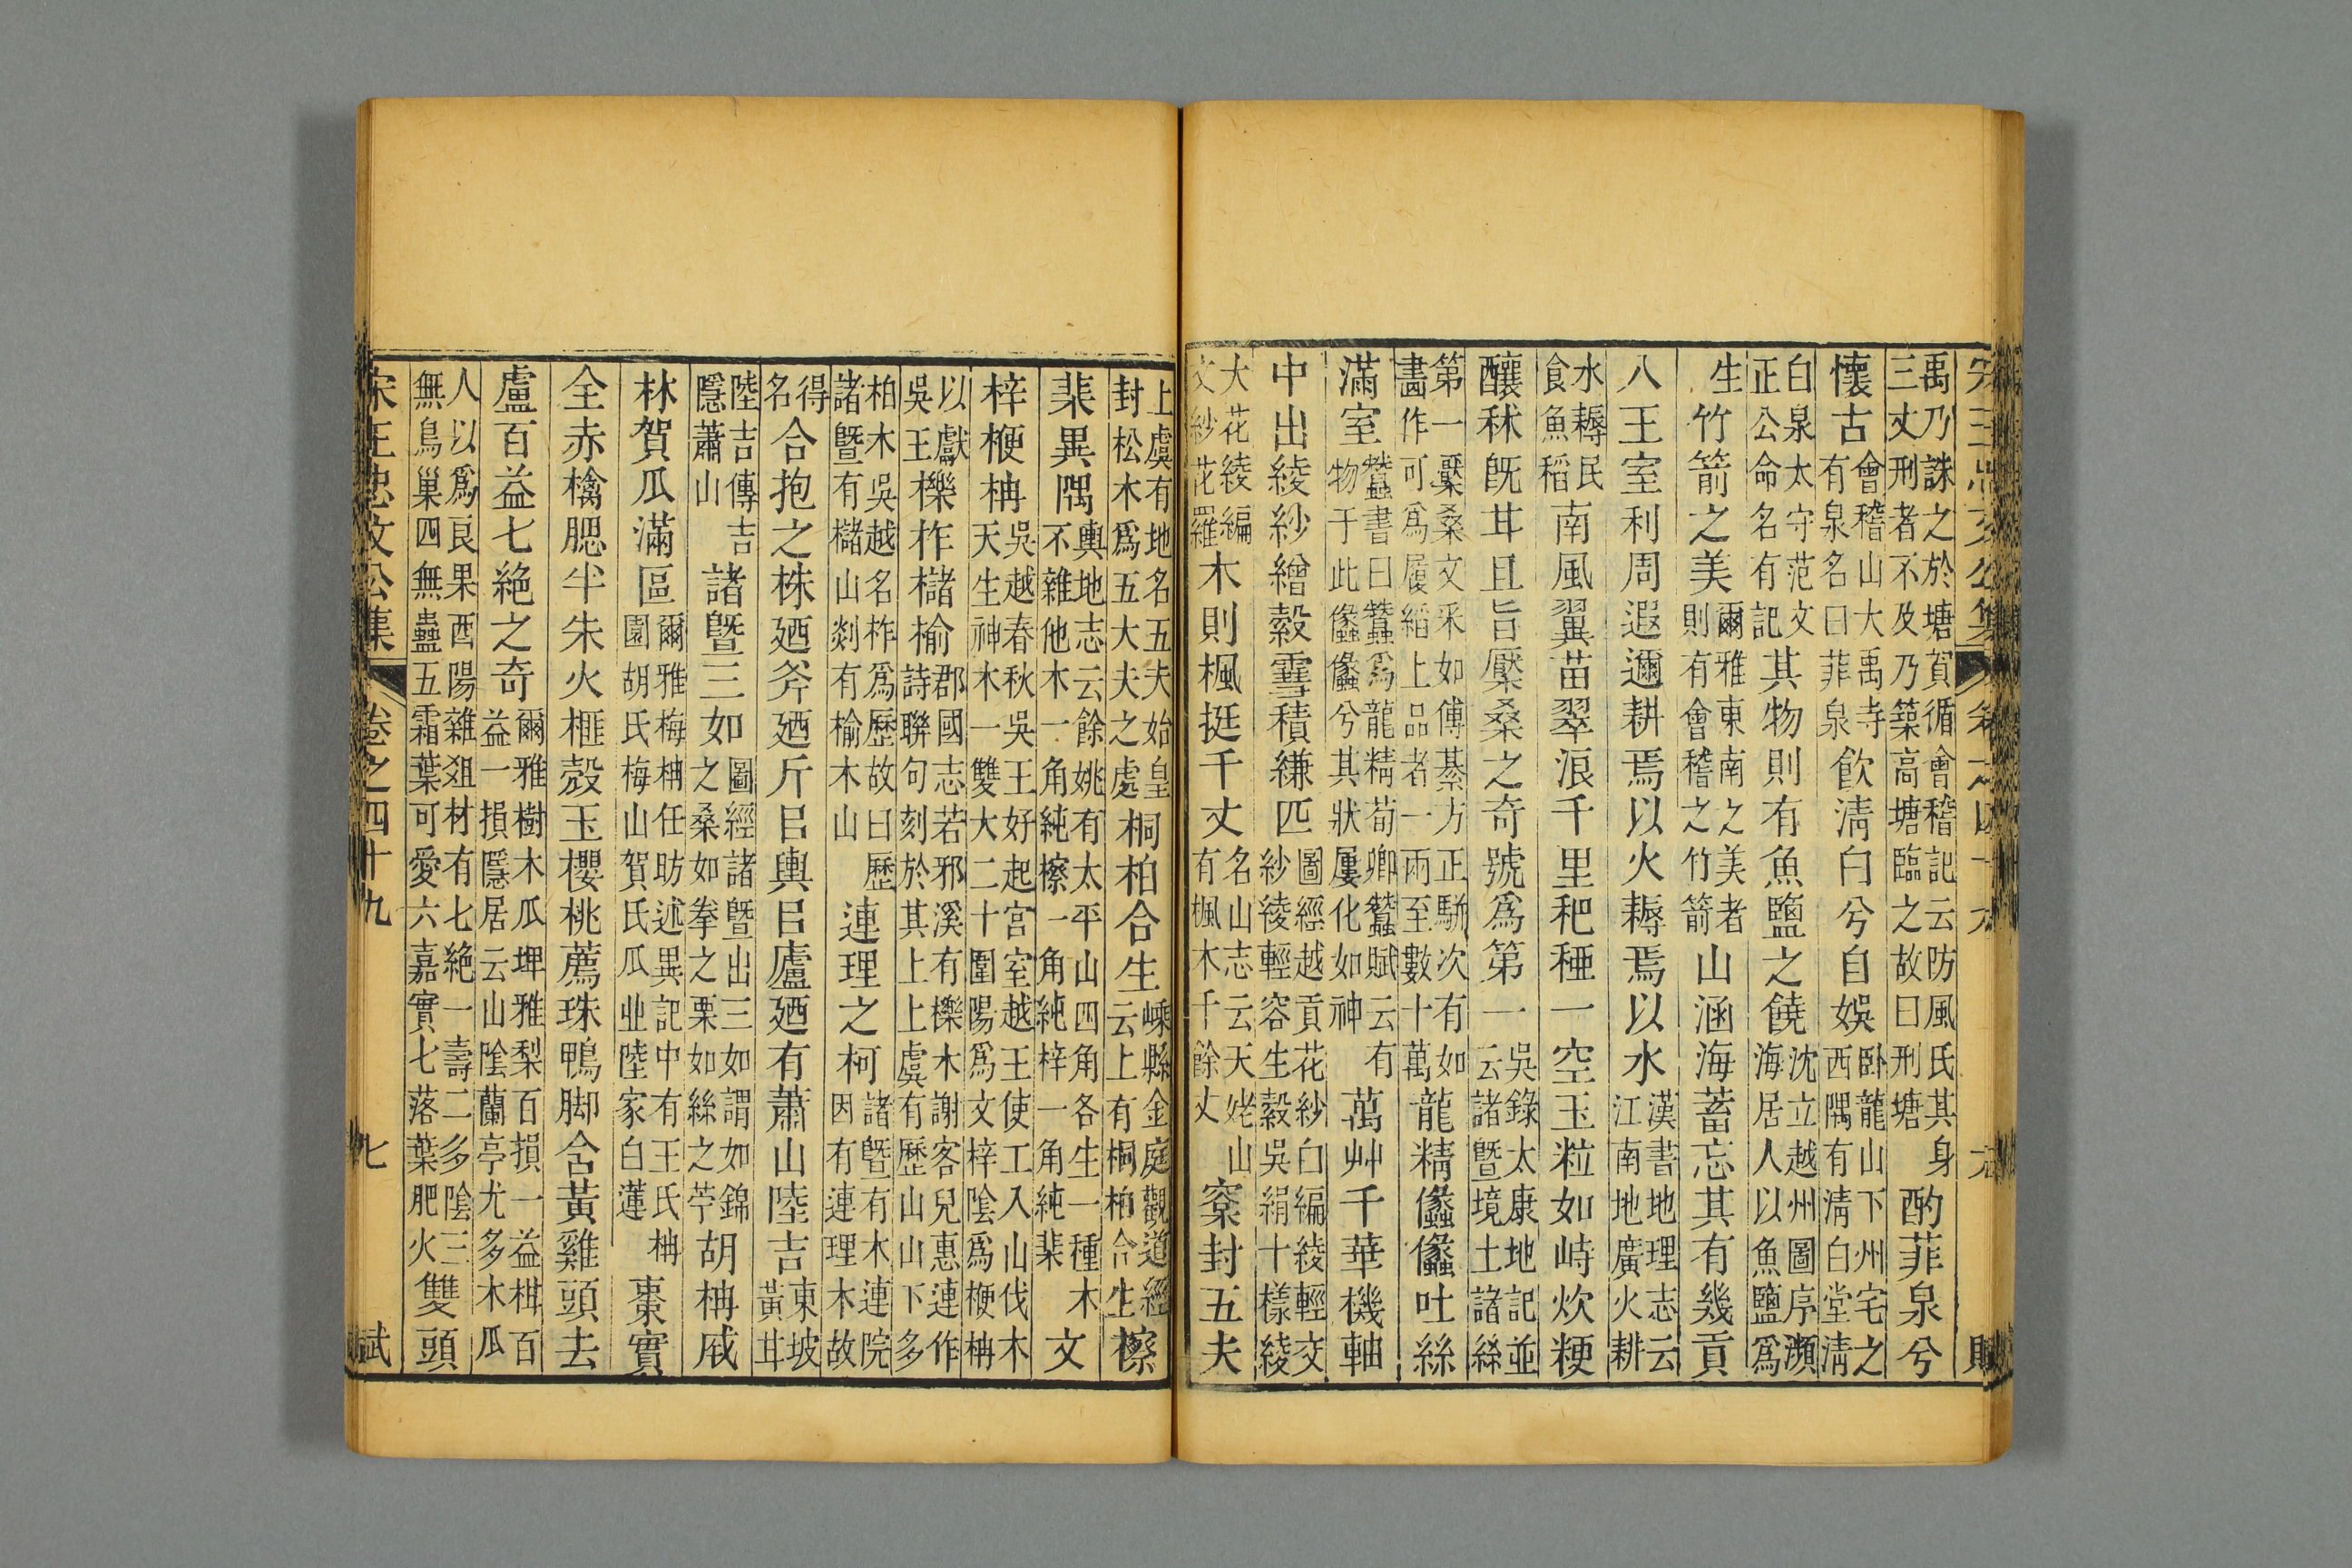 禹乃誅之於塘賀循會稽記云防風氏其身
三丈刑者不及乃築高塘臨之故曰刑塘
酌菲泉兮
懷古
會稽山大禹寺
有泉名曰菲泉
飲淸白兮自娛
卧龍山下州宅之
西隅有淸白堂淸
白泉太守范文
正公命名有記
其物則有魚鹽之饒
沈立越州圖序瀕
海居人以魚鹽爲
生
竹箭之美
爾雅東南之美者
則有會稽之竹箭
山涵海蓄忘其有幾貢
八王室利周遐邇耕焉以火耨焉以水
漢書地理志云
江南地廣火耕
水耨民
食魚稻
南風翼苗翠浪千里秬穜一空玉粒如峙炊粳
釀秫旣甘且旨檿桑之奇號爲第一
吳錄太康地記並
云諸曁境土諸絲
第一檿桑文采如傅綦方正駢次有如
畵作可爲履縚上品者一兩至數十萬
龍精儽儽吐絲
滿室
蠶書曰蠶爲龍精荀卿蠶賦云有
物于此儽儽兮其狀屢化如神
萬艸千華機軸
中出綾紗繒縠雪積縑匹
圖經越貢花紗白編綾輕交
紗綾輕容生縠吳絹十樣綾
大花綾編
文紗花羅
木則楓挺千丈
名山志云天姥山
有楓木千餘丈
寀封五夫
上虞有地名五夫始皇
封松木爲五大夫之處
桐柏合生
嵊縣金庭觀道經
云上有桐柏合生
檫
棐異隅
輿地志云餘姚有太平山四角各生一種木
不雜他木一角純檫一角純梓一角純棐
文
梓楩柟
吳越春秋吳王好起宮室越王使工入山伐木
天生神木一雙大二十圍陽爲文梓陰爲楩柟
以獻
吳王
櫟柞櫧榆
郡國志若邪溪有櫟木謝客兒惠連作
詩聯句刻於其上上虞有歷山山下多
柏木吳越名柞爲歷故曰歷
諸曁有櫧山剡有榆木山
連理之柯
諸曁有木連院
因有連理木故
得
名
合抱之株廼斧廼斤㠯輿㠯廬廼有蕭山陸吉
東坡
黃甘
陸吉傳吉
隱蕭山
諸曁三如
圖經諸曁出三如謂如錦
之桑如拳之栗如絲之苧
胡柟戚
林賀瓜滿區
爾雅梅柟任昉述異記中有王氏柟
園胡氏梅山賀氏瓜业陸家白蓮
棗實
全赤檎腮半朱火榧殼玉櫻桃薦珠鴨脚含黃雞頭去
盧百益七絕之奇
爾雅樹木瓜埤雅梨百損一益楂百
益一損隱居云山陰蘭亭尤多木瓜
人以爲良果酉陽雜俎材有七絕一壽二多陰三
無鳥巢四無蠹五霜葉可愛六嘉實七落葉肥火
雙頭
宋王忠文公集
卷之四十九
七
賦